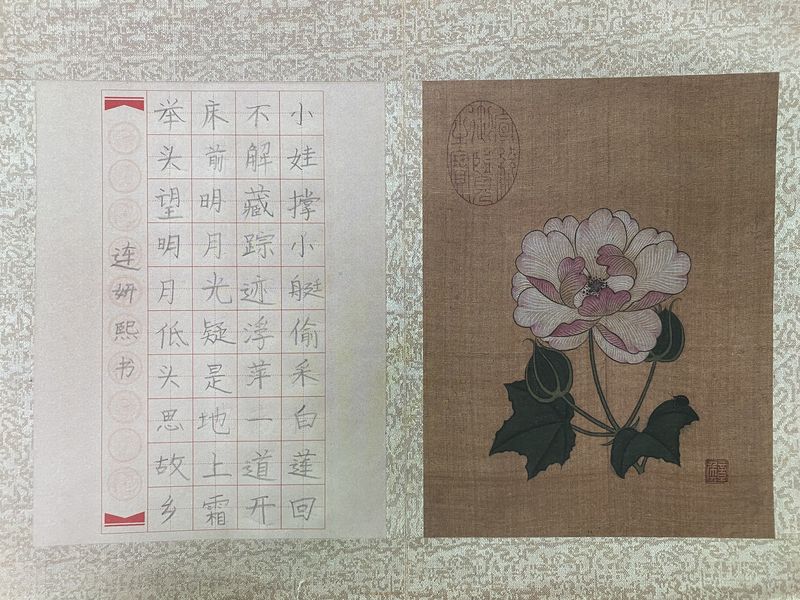 小娃撑小艇偷采白莲回
不解藏踪迹浮萍一道开
床前明月光疑是地上霜
举头望明月低头思故乡
连妍熙书